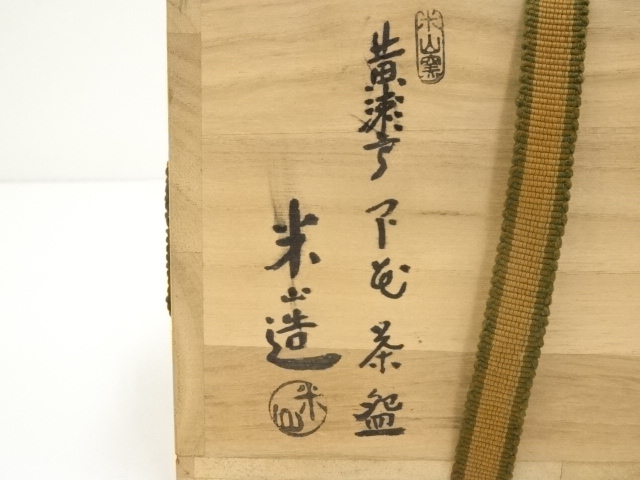 米山窯
黄瀬戸 茶盌
米山造
米山